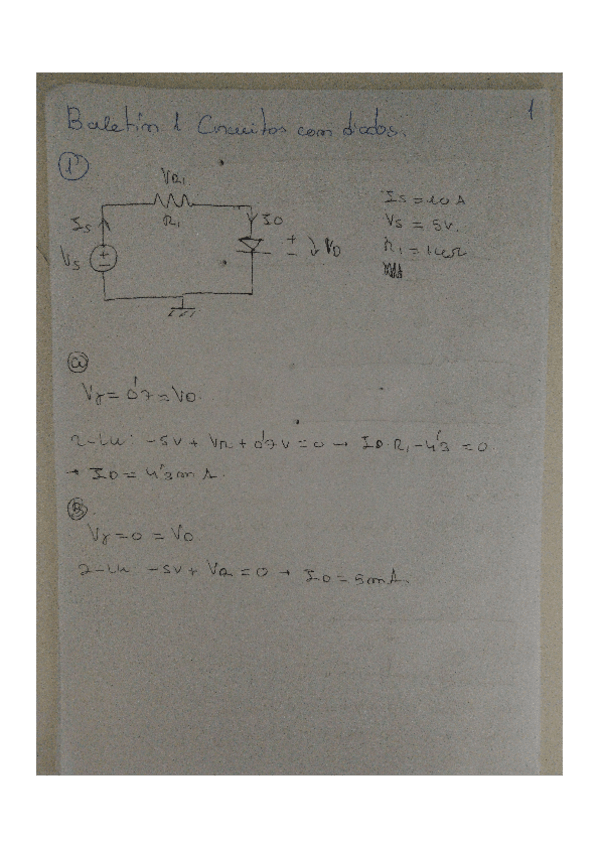 1
Boletín 1 Circuitos con diodos.
1º
VR1
R1
IS
ID
VS
+
-
+
-
VD
IS = 10 A
VS = 5V.
R1 = 1kΩ
a
Vγ = 0'7 = VD.
2-LK: -5V + VR + 0'7V = 0 → ID·R1 - 4'3 = 0
→ ID = 4'3 mA.
B
Vγ = 0 = VD
2-LK: -5V + VR = 0 → ID = 5mA